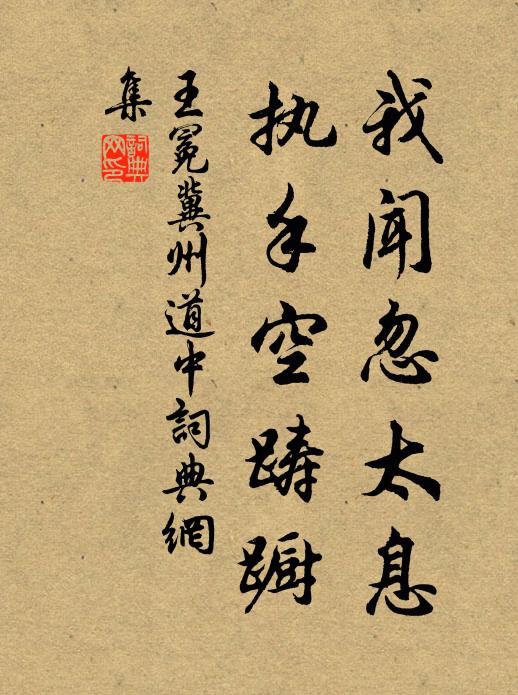 我闻忽太息
执手空踌蹰
王冕冀州道中詞典網
集
詞典
网印